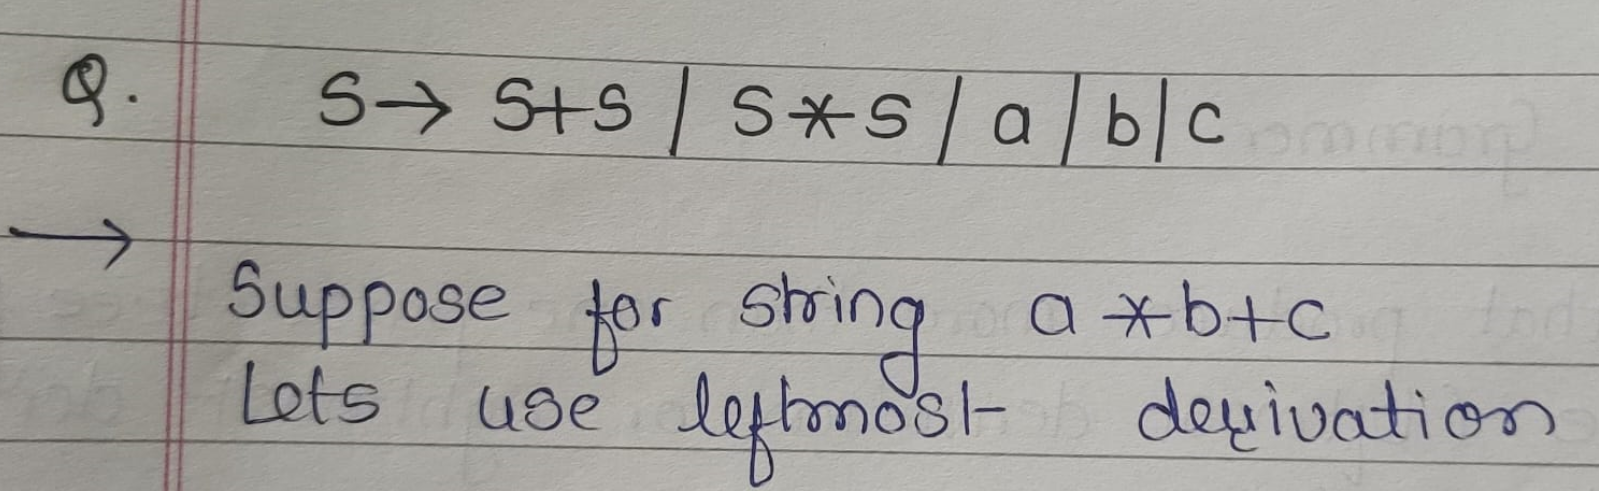 Q. S → S+S | S*S | a | b | c
→
Suppose for string a *b+c
Lets use leftmost derivation